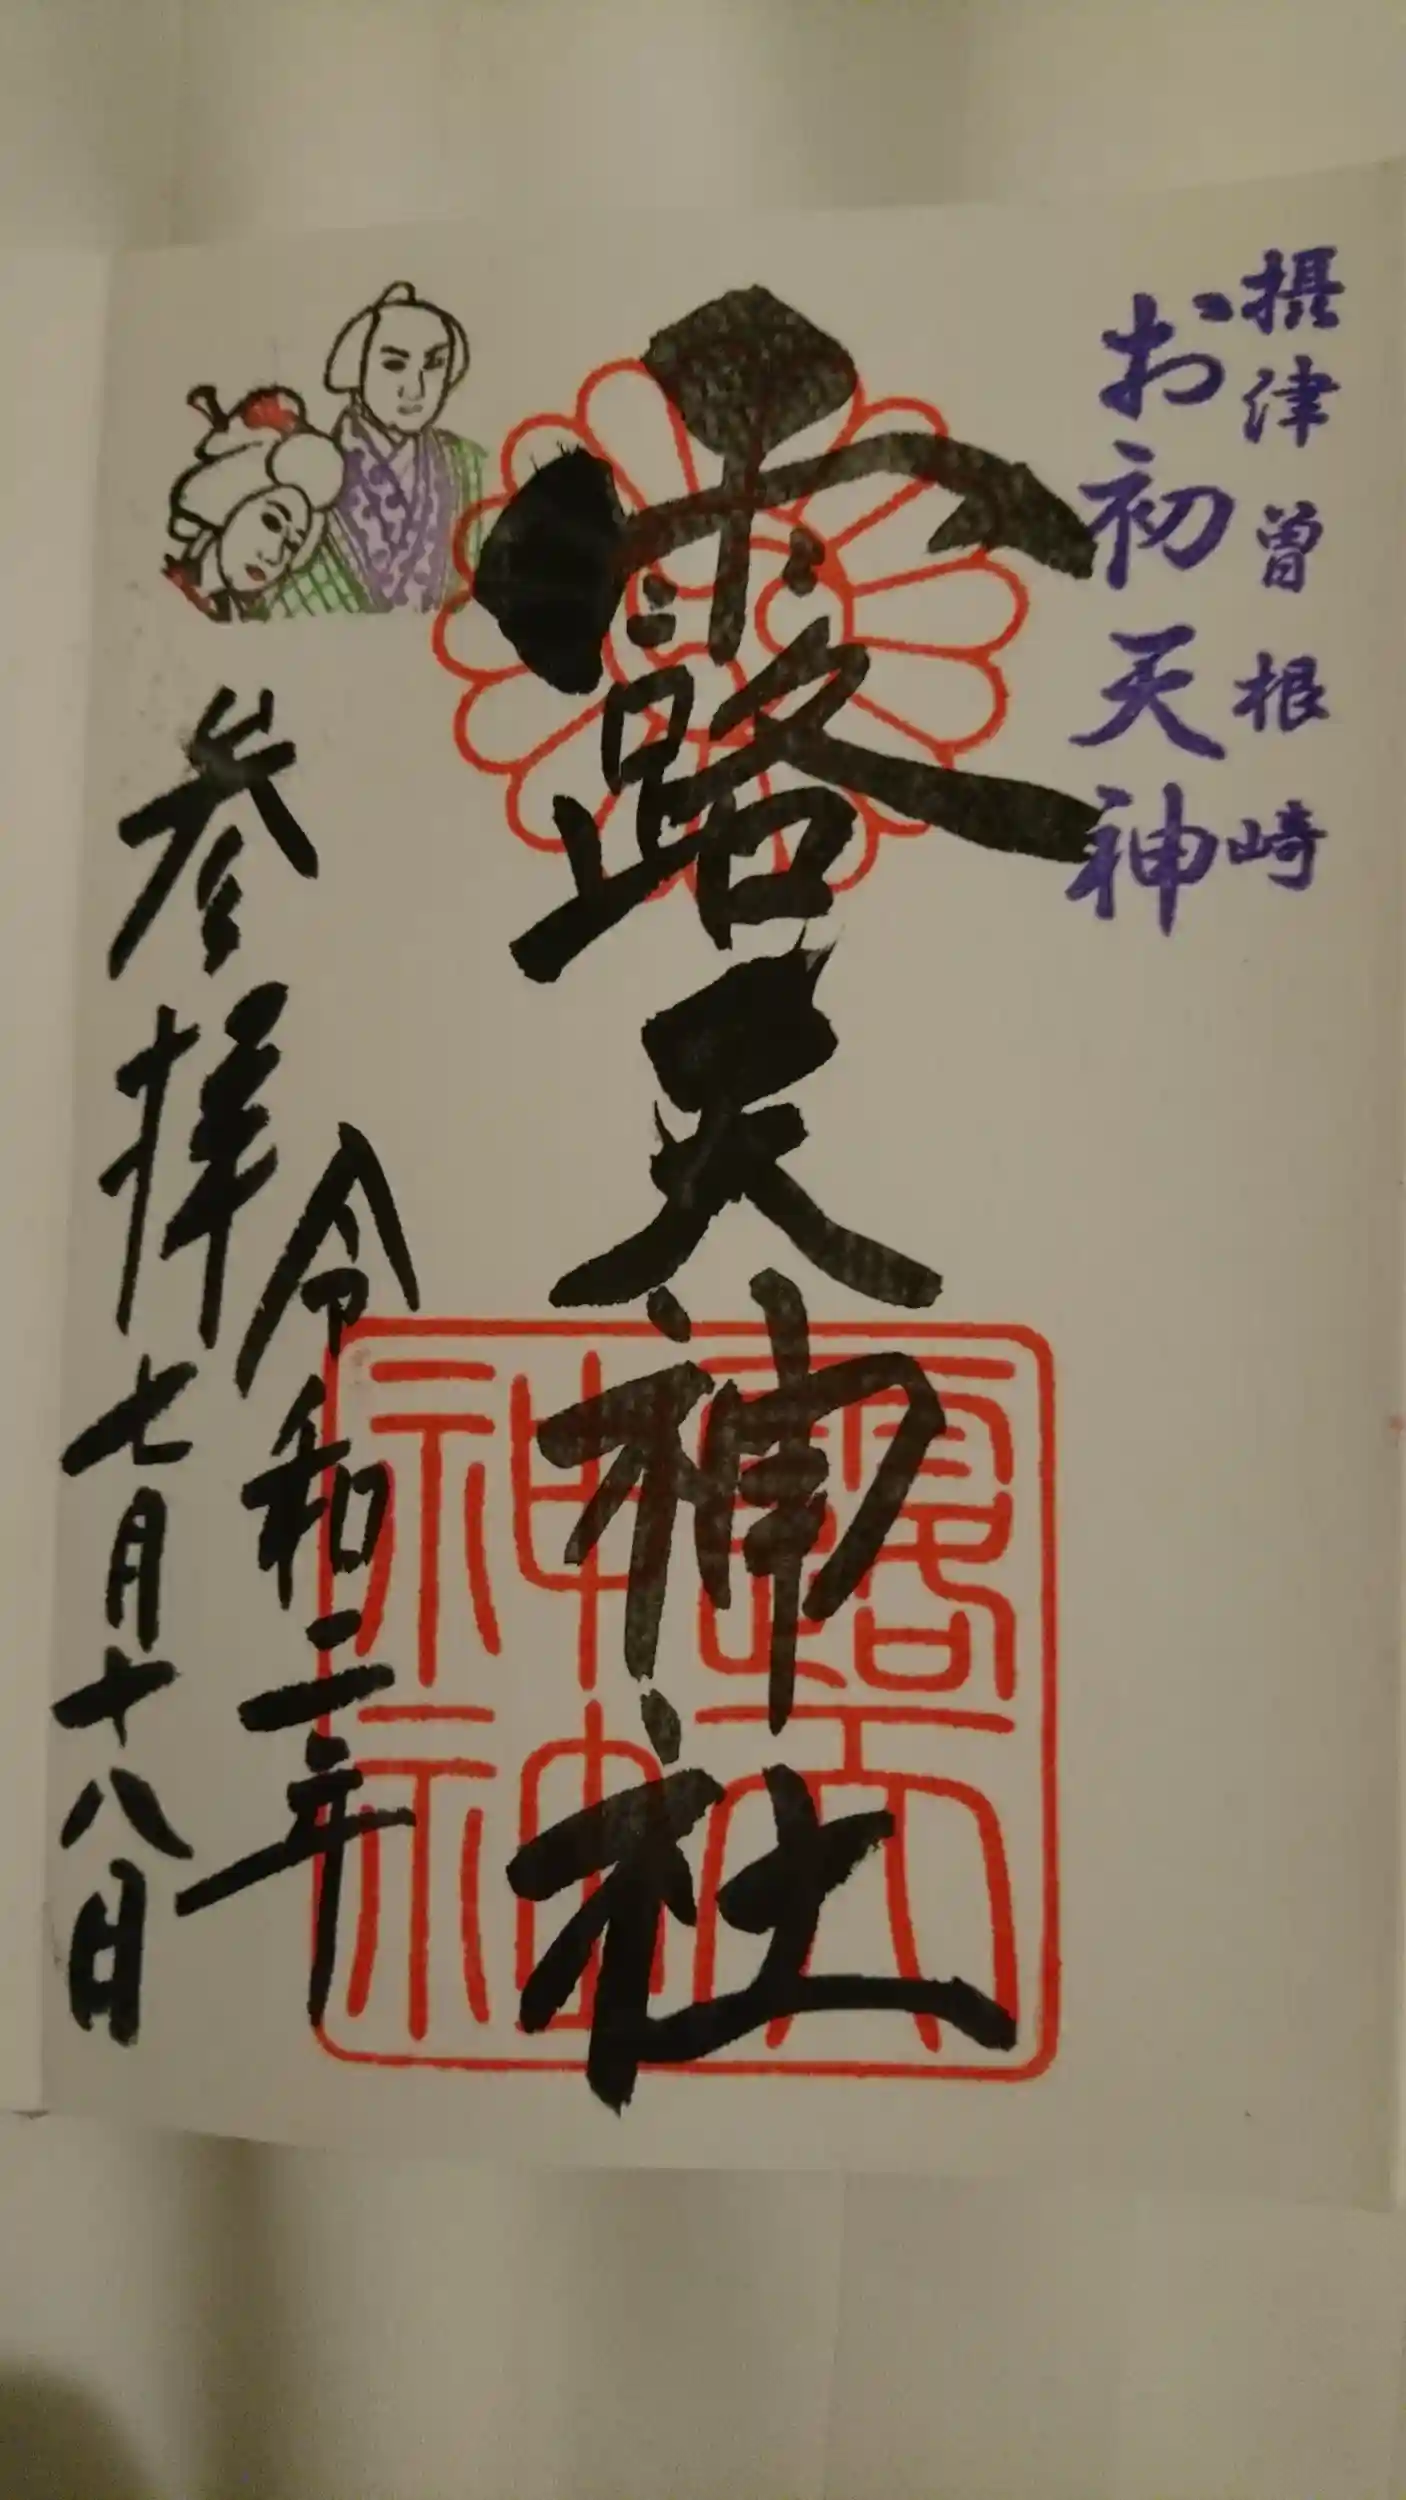 摂津曽根崎
お初天神
露天神社
露天神社
令和二年
参拝 七月十八日